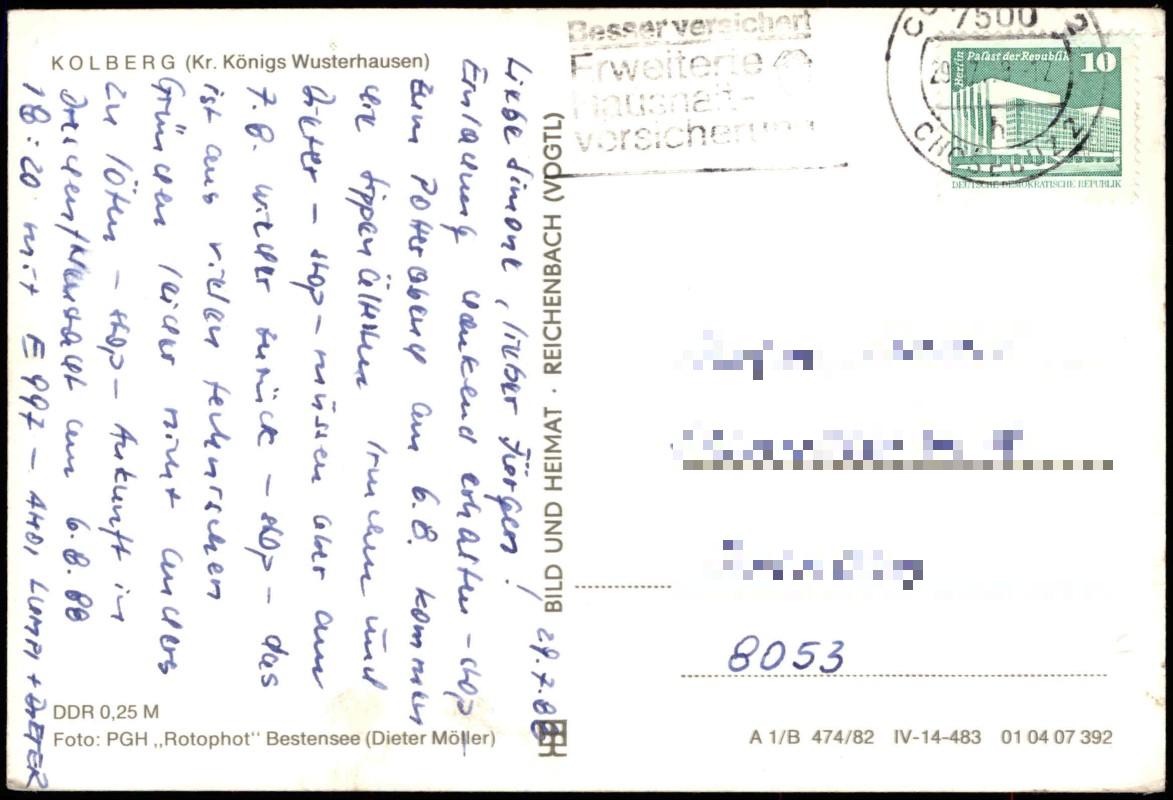 KOLBERG (Kr. Königs Wusterhausen)
Liebe Simone, lieber Jürgen!
29.7.88
Einladung dankend erhalten – stop –
zum Polterabend am 6.8. kommen
die
Dieter – stop – müssen aber am
7.8. wieder zurück – stop – das
ist aus vielen technischen
Gründen leider nicht anders
zu lösen – stop – Ankunft in
Dresden/Neustadt am 6.8.88
18:20 mit E 997 – AHOI LUMPI + DIETER
DDR 0,25 M
Foto: PGH „Rotophot" Bestensee (Dieter Möller)
BILD UND HEIMAT · REICHENBACH (VOGTL)
Besser versichert
Erweiterte
Haushalt-
versicherung
7500
COTTBUS
CHOŚEBUZ 2
Berlin, Palast der Republik
10
DEUTSCHE DEMOKRATISCHE REPUBLIK
8053
A 1/B 474/82 IV-14-483 01 04 07 392